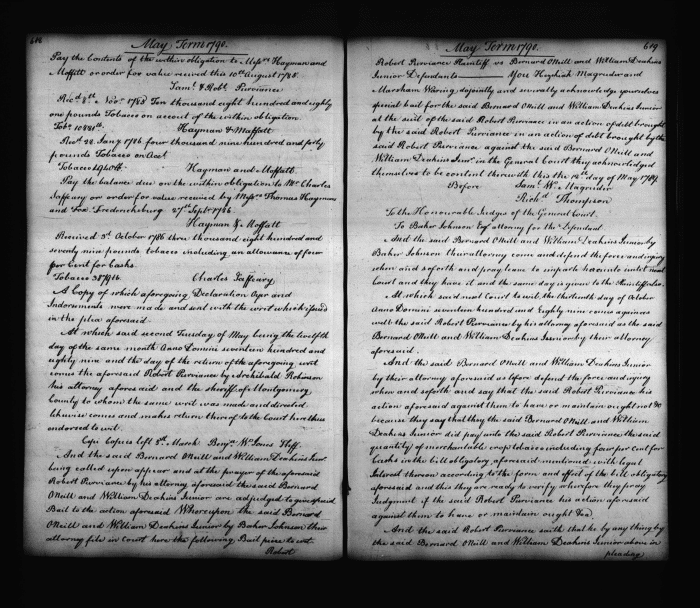 618
May Term 1790.
Pay the Contents of the within obligation to Messrs Hayman and
Moffatt or order for value received this 10th August 1785.
Saml & Robt Purviance
Recd 8th Novr 1785 Ten thousand eight hundred and eighty
one pounds Tobacco on account of the within obligation.
Tobo 10881 lb. Hayman & Moffatt
Recd 28 Jany 1786 four thousand nine hundred and forty
pounds Tobacco on Acct.
Tobacco 4940 lb. Hayman and Moffatt.
Pay the balance due on the within obligation to Mr. Charles
Jaffaray or order for value received by Messrs Thomas Hayman
and Fredericksburg 27th Sept 1786.
Hayman & Moffatt
Received 3d October 1786 three thousand eight hundred and
seventy nine pounds tobacco including an allowance of four
per Cent for Casks.
Tobacco 3879 lb. Charles Jaffeary
A Copy of which aforegoing Declaration and
Indorsments were made and sent with the writ which issued
in the plea aforesaid.
At which said second Tuesday of May being the twelfth
day of the same month Anno Domini seventeen hundred and
eighty nine and the day of the return of the aforegoing writ
comes the aforesaid Robert Purviance by Archibald Robinson
his attorney aforesaid and the sheriff of Montgomery
County to whom the same writ was made and directed
likewise comes and makes return thereof to the Court here thus
endorsed to wit.
Cepi Copies left 3d March Benjn Wn Jones Shff.
And the said Bernard ONeill and William Deakins Junr
being called upon appear and at the prayer of the aforesaid
Robert Purviance by his attorney aforesaid the said Bernard
ONeill and William Deakins Junior are adjudged to give special
Bail to the action aforesaid Whereupon the said Bernard
ONeill and William Deakins Junior by Baker Johnson their
attorney file in Court here the following Bail piece to wit.
Robert
619
May Term 1790.
Robert Purviance Plaintiff vs Bernard ONeill and William Deakins
Junior Defendants You Hezekiah Magruder and
Marsham Waring do jointly and severally acknowledge yourselves
special bail for the said Bernard ONeill and William Deakins Junior
at the suit of the said Robert Purviance in an action of debt brought
by the said Robert Purviance in an action of debt brought by the
said Robert Purviance against the said Bernard ONeill and
William Deakins Junr. in the General Court they acknowledged
themselves to be content therewith this the day of May 1789.
Before Saml W. Magruder
Richd Thompson
To the Honourable Judges of the General Court.
To Baker Johnson Esqr attorney for the Defendant.
And the said Bernard ONeill and William Deakins Junior by
Baker Johnson their attorney come and defend the force and injury
when and soforth and pray leave to imparle hereunto until next
Court and they have it and the same day is given to the Plaintiff also.
At which said next Court to wit the thirteenth day of October
Anno Domini seventeen hundred and Eighty nine comes as
well the said Robert Purviance by his attorney aforesaid as the said
Bernard ONeill and William Deakins Junior by their attorney
aforesaid.
And the said Bernard ONeill and William Deakins Junior
by their attorney aforesaid as before defend the force and injury
when and soforth and say that the said Robert Purviance his
action aforesaid against them to have or maintain ought not &c
because they say that they the said Bernard ONeill and William
Deakins Junior did pay unto the said Robert Purviance the said
quantity of merchantable crop tobacco including four per cent for
Casks in the bill obligatory aforesaid mentioned with legal
Interest thereon according to the form and effect of the bill obligatory
aforesaid and this they are ready to verify wherefore they pray
Judgment if the said Robert Purviance his action aforesaid
against them to have or maintain ought &ca.
And the said Robert Purviance saith that he by any thing by
the said Bernard ONeill and William Deakins Junior above in
pleading